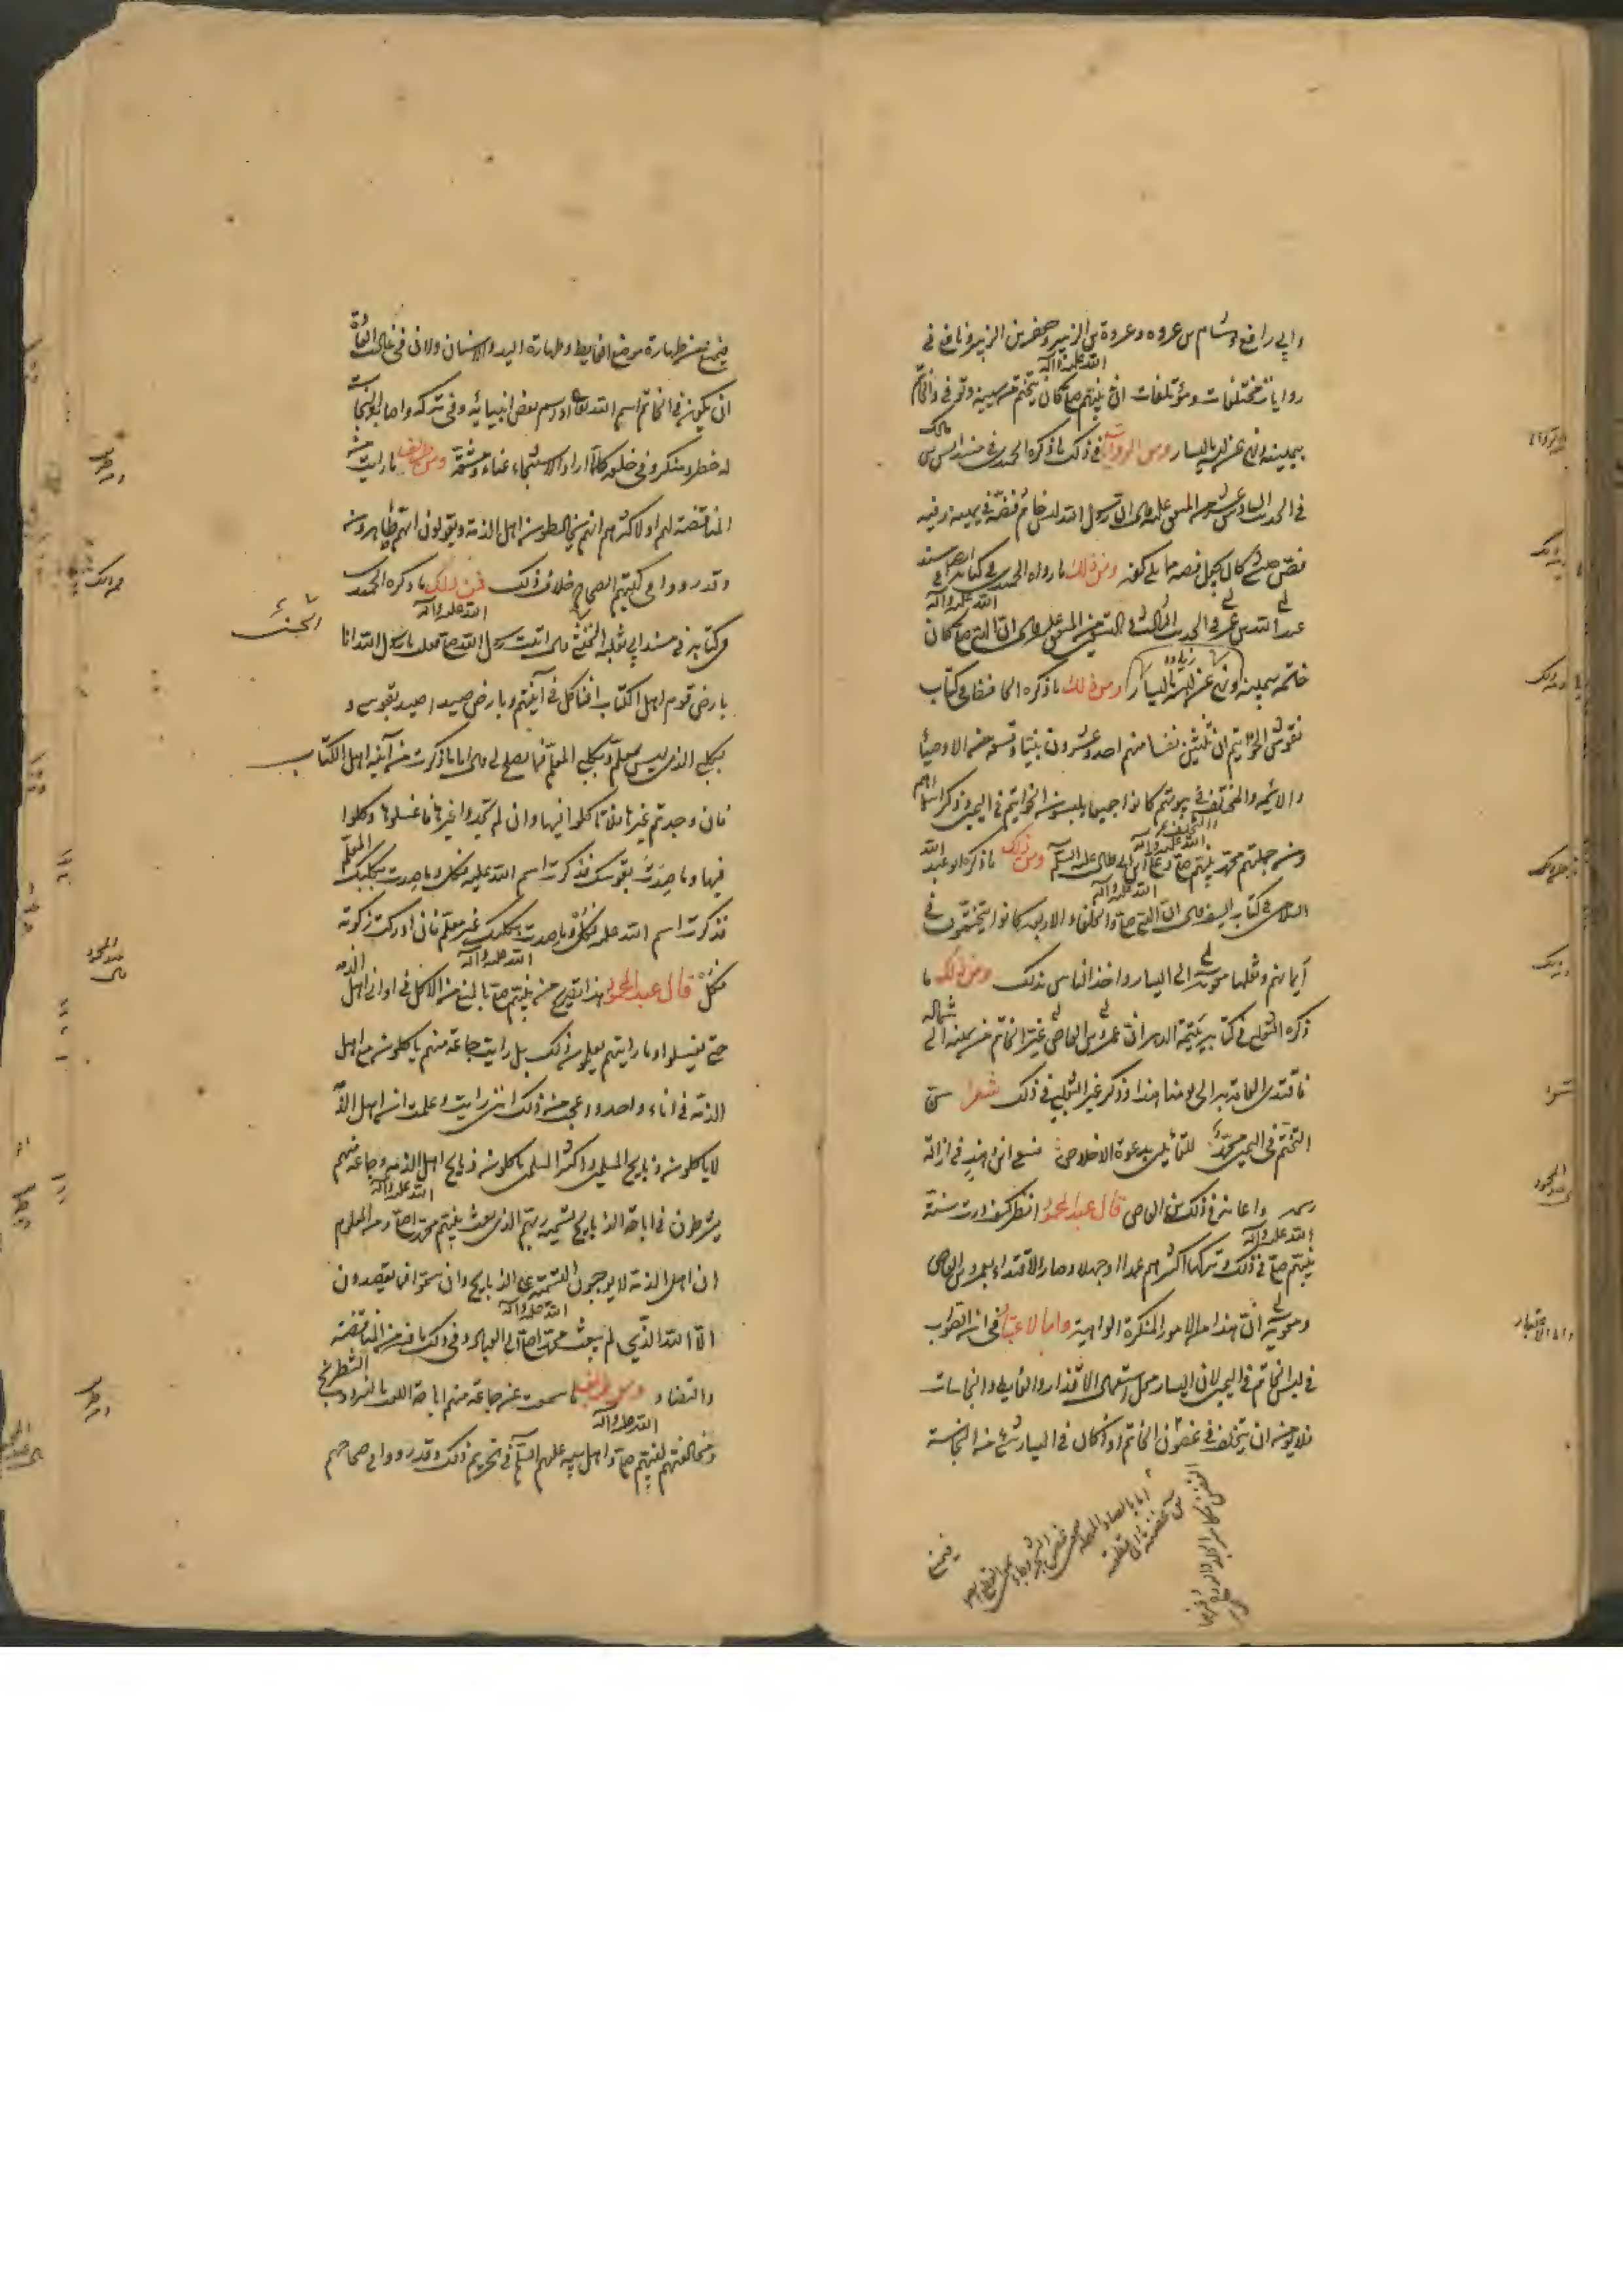 وابي رافع وهشام بن عروه وعروة بن الزبير وجعفر بن الزبير ونافع في
روايات مختلفات ومؤتلفات ان نبيهم صلى الله عليه وآله كان يتختم في يمينه وتوفي والخاتم
بيمينه ونهى عن لبسه باليسار ومن الروايات في ذلك ما ذكره الحميدي في مسند انس بن مالك
في الحديث السادس عشر من المتفق عليه قال ان رسول الله لبس خاتم فضة في يمينه وفيه
فص حبشي كان يجعل فصه مما يلي كفه ومن ذلك ما رواه الحميدي في كتابه ايضا في مسند
عبد الله بن عمر في الحديث الثالث والتسعين من المتفق عليه قال ان النبي صلى الله عليه وآله كان
خاتمه بيمينه ونهى عن لبسه باليسار ومن ذلك ما ذكره الجاحظ في كتاب
نقوش الخواتيم ان ثلثين نفسا منهم احد وعشرون نبيا وتسعة من الاوصياء
والائمه والمختلف في نبوتهم كانوا جميعا يلبسون الخواتيم في اليمين وذكر اسماءهم
ومن جملتهم محمد نبيهم صلى الله عليه وآله وعلي بن ابي طالب عليه السلام ومن ذلك ما ذكره ابو عبد الله
السلامي في كتاب السيف قال ان النبي صلى الله عليه وآله والخلفاء الاربعه كانوا يتختمون في
أيمانهم ونقلها معويه الى اليسار واخذ الناس بذلك ومن ذلك ما
ذكره الثعلبي في كتاب يتيمة الدهر ان عمرو بن العاص غير الخاتم من يمينه الى شماله
فاقتدى العامة به الى يومنا هذا وذكر غير الثعلبي في ذلك شعرا سن
التختم في اليمين محمد للقائلين بدعوة الاخلاص فسعى ابن هند في ازالة
رسمه واعانه في ذلك ابن العاص قال عبد المحمود انظر كيف درست سنة
نبيهم صلى الله عليه وآله في ذلك وتركها اكثرهم عمدا او جهلا وصار الاقتداء بعمرو بن العاص
ومعويه ان هذا من الامور المنكرة الواهية واما الاعتبار في ان الصواب
في لبس الخاتم في اليمين لان اليسار محل استعمال الاقذار والغايط والنجاسات
فلا يؤمن ان يتخلف في غضون الخاتم اذا كان في اليسار شيء من النجاسة
فيمنع
واما الاعتبار
فيمنع من طهارة موضع الغايط وطهارة اليد والانسان ولان في غالب العادة
ان يكون في الخاتم اسم الله تعالى او اسم بعض انبيائه وفي تركه واصابة النجاسات
له خطر ومنكر وفي خلعه كلما اراد الاستنجاء عناء ومشقة ومن طرايف ما رايت من
المناقضة لهم او لاكثرهم انهم يخالطون اهل الذمة ويقولون انهم طاهرون
وقد رووا في كتبهم الصحاح خلاف ذلك فمن ذلك ما ذكره الحميدي
في كتابه في مسند ابي ثعلبه الخشني قال اتيت رسول الله صلى الله عليه وآله فقلت يا رسول الله انا
بارض قوم اهل الكتاب افنأكل في آنيتهم وبارض صيد اصيد بقوسي و
بكلبي الذي ليس بمعلم وبكلبي المعلم فما يصلح لي قال اما ما ذكرت من آنية اهل الكتاب
فان وجدتم غيرها فلا تأكلوا فيها وان لم تجدوا غيرها فاغسلوها وكلوا
فيها وما صدت بقوسك فذكرت اسم الله عليه فكل وما صدت بكلبك المعلم
فذكرت اسم الله عليه فكل وما صدت بكلبك غير معلم فان ادركت ذكوته
فكل قال عبد المحمود هذا تصريح من نبيهم صلى الله عليه وآله بالمنع من الاكل في اواني اهل الذمه
حتى يغسلوا وما رايتهم يعملون بذلك بل رايت جماعة منهم يأكلون مع اهل
الذمة في اناء واحد وعجب من ذلك انني رايت وعلمت ان اهل الذمة
لا يأكلون ذبايح المسلمين واكثر المسلمين يأكلون ذبايح اهل الذمه وجماعة منهم
يشترطون في اباحة الذبايح تسمية ربهم الذي بعث نبيهم محمدا صلى الله عليه وآله ومن المعلوم
ان اهل الذمة لا يوجبون التسمية على الذبايح وان سموا فما يقصدون
الا الله الذي لم يبعث محمدا صلى الله عليه وآله الى العباد وفي ذلك ما فيه من المناقضة
والتضاد ومن طرايف ما سمعت عن جماعة منهم اباحة اللعب بالنرد والشطرنج
ومخالفتهم لنبيهم صلى الله عليه وآله واهل بيته عليهم السلام في تحريم ذلك وقد رووا في صحاحهم
الخشني